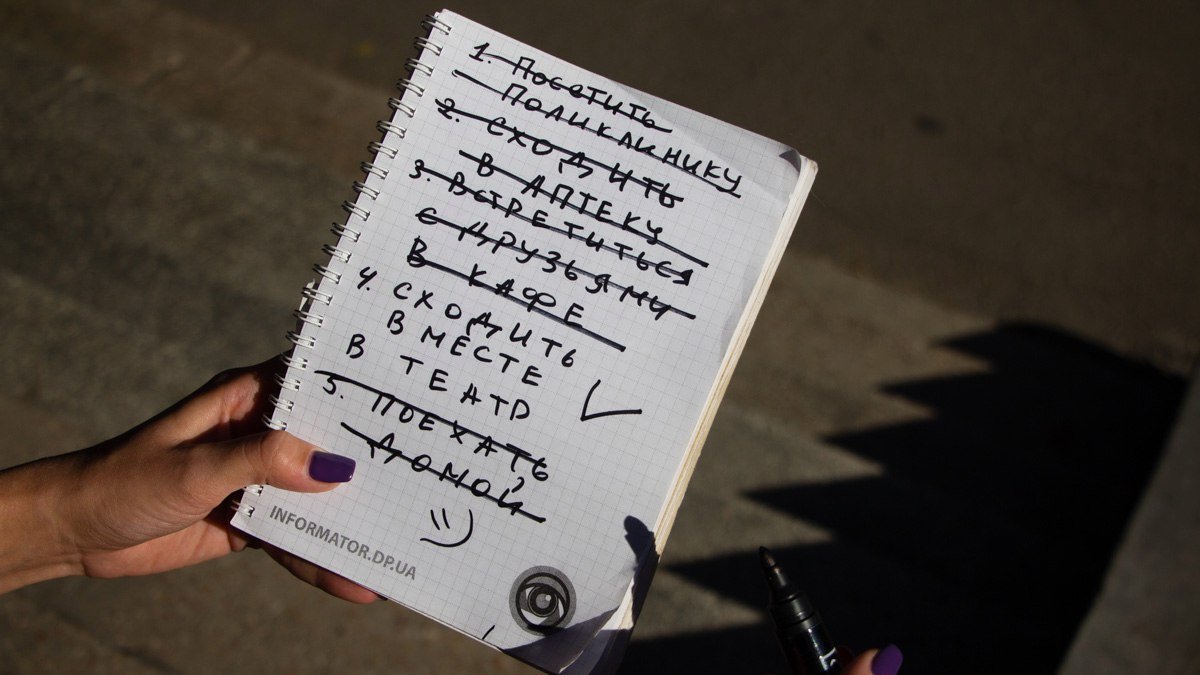 1. Посетить
поликлинику
2. Сходить
в аптеку
3. Встретиться
с друзьями
в кафе
4. Сходить
вместе
в театр
5. Поехать
домой
INFORMATOR.DP.UA